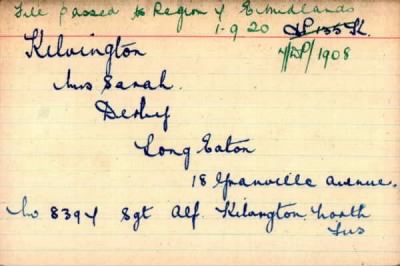 File passed to Region 4 E. Midlands
1-9 20 DP 135 K.
7/DP/1908
Kilvington
Mrs Sarah.
Derby
Long Eaton
18 Granville Avenue.
No 8394 Sgt Alf. Kilvington. North
Fus